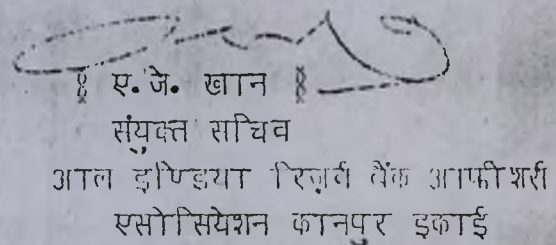 § ए. जे. खान §
संयुक्त सचिव
आल इण्डिया रिज़र्व बैंक आफीशर्स
एसोसियेशन कानपुर इकाई